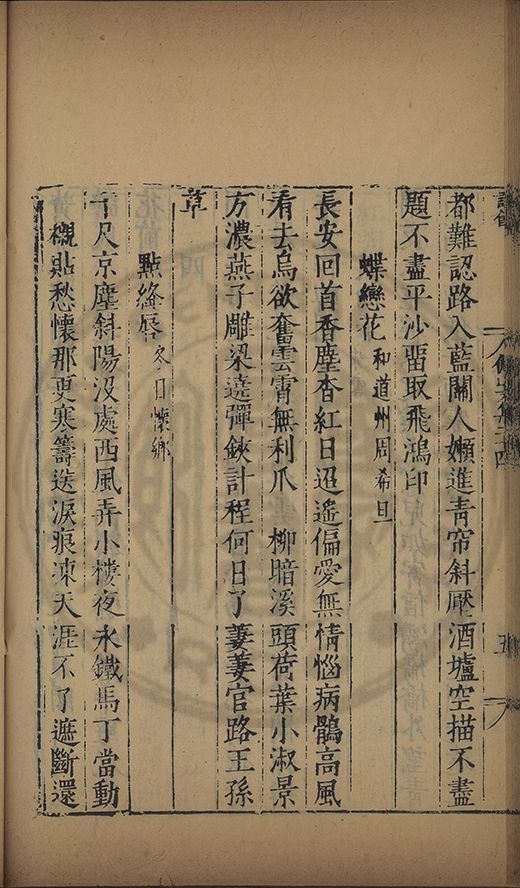 都難認路入藍關人嬾進青帘斜壓酒壚空描不盡
題不盡平沙畱取飛鴻印
蝶戀花 和道州周希旦
長安回首香塵杳紅日迢遙偏愛無情惱病鶻高風
看去烏欲奮雲霄無利爪 柳暗溪頭荷葉小淑景
方濃燕子雕梁遶彈鋏計程何日了萋萋官路王孫
草
點絳唇 冬日懷鄉
千尺京塵斜陽沒處西風弄小樓夜永鐵馬丁當動
櫬貼愁懷那更寒籌送淚痕凍天涯不了遮斷還